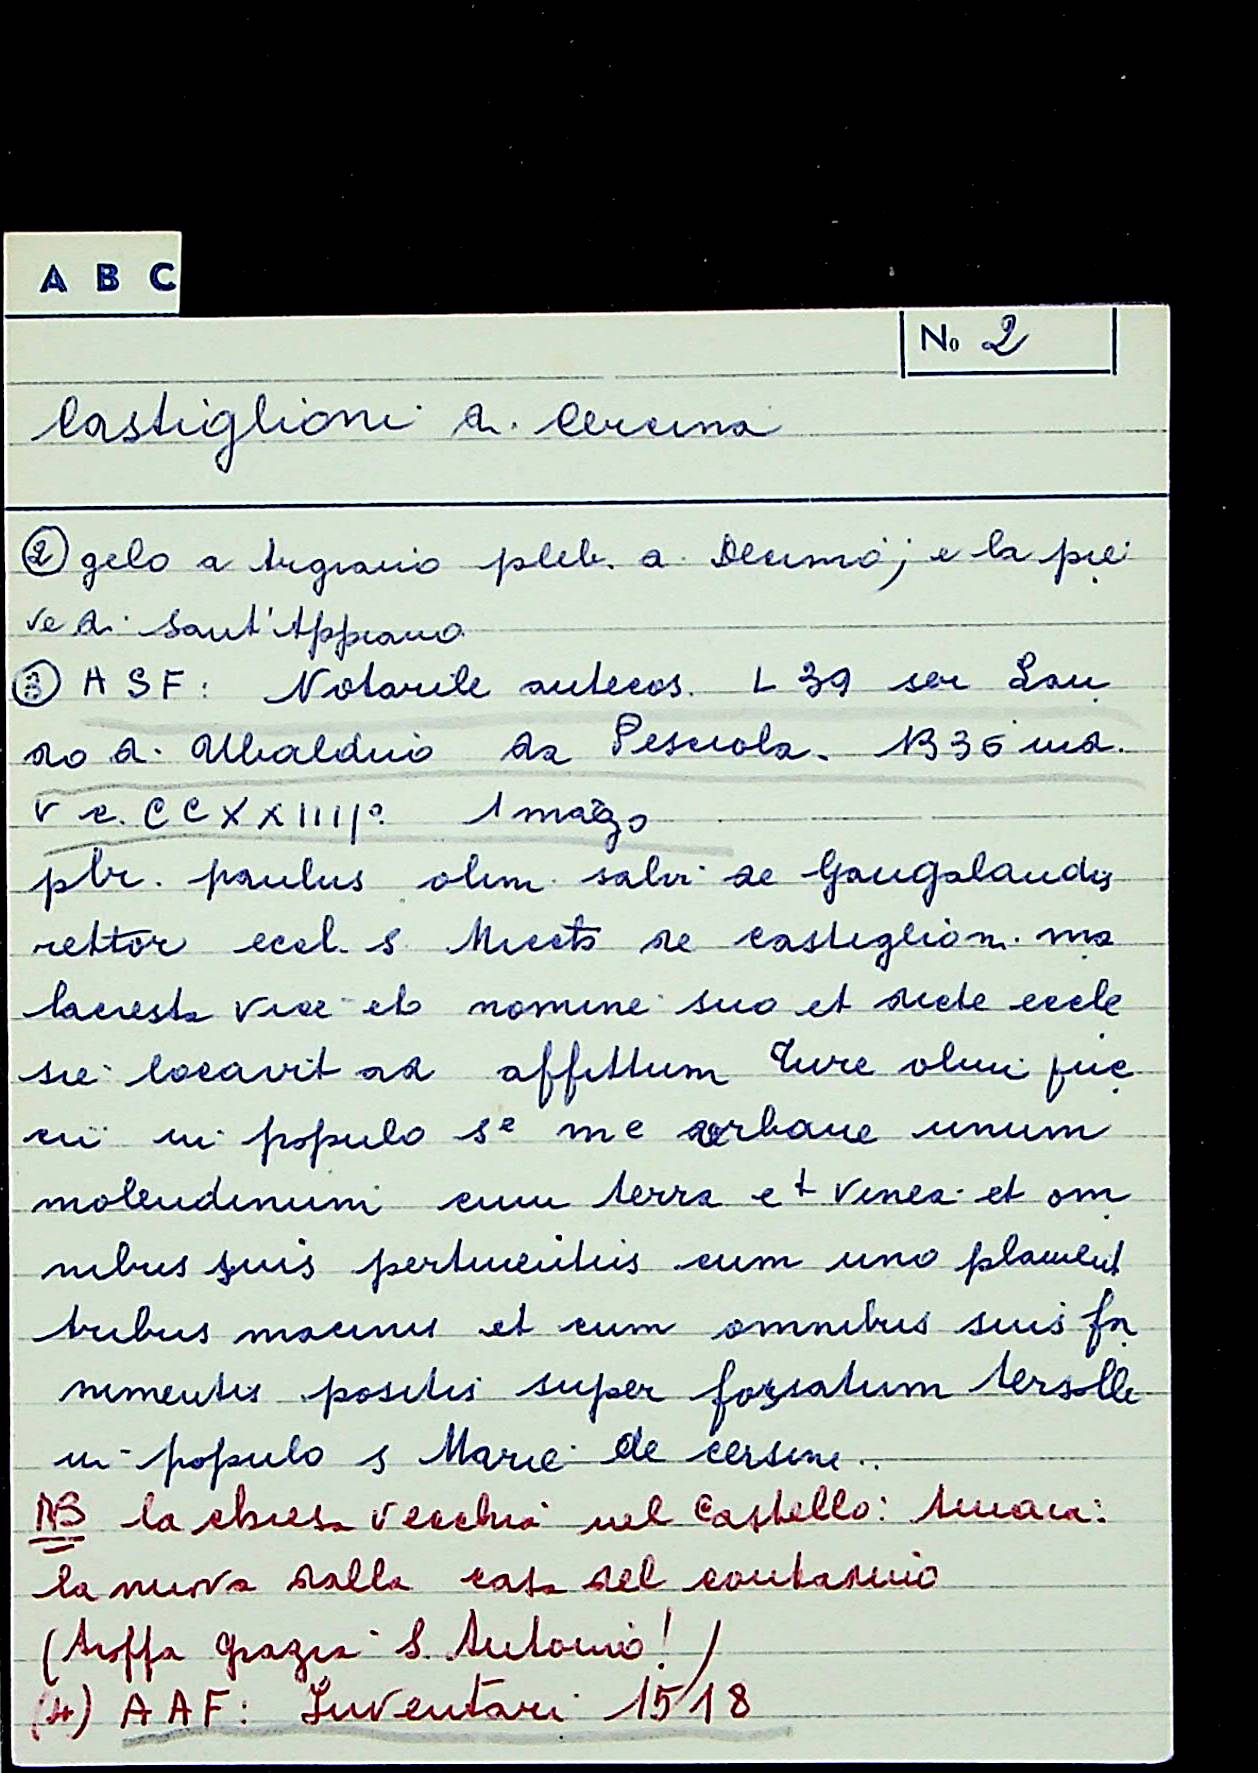 A B C
No 2
Castiglioni di Cercina
② gelo a Argiano pleb. a Decimo; e la pie
ve di Sant'Appiano
③ ASF: Notarile antecos. L 39 ser Lan
do di Ubaldino da Pesciola. 1336 ind.
V c. CCXXIIII° 1 marzo
pbr. paulus olim salvi de Gangalandis
rettor eccl. s. de castiglioni ma
lacresta vice et nomine suo et dicte eccle
sie locavit ad affittum Ture olim puc
cii in populo s.e m e urbane unum
molendinum cum terra et vinea et om
nibus suis pertinentiis cum uno
tribus macinis et cum omnibus suis for
nimentis positis super fossatum Tersolle
in populo s Marie de cersine..
NB la chiesa vecchia nel Castello:
la nuova dalla casa del contadino
(troffa grazia S. Antonio!)
(4) AAF: Inventari 1518